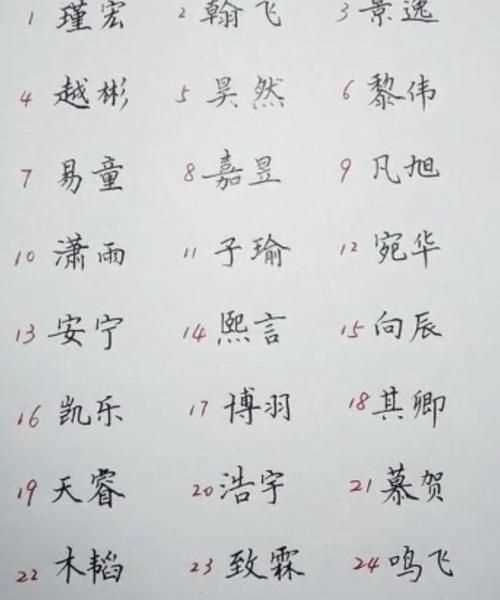 1 瑾宏 2 翰飞 3 景逸
4 越彬 5 昊然 6 黎伟
7 易童 8 嘉昱 9 凡旭
10 潇雨 11 子瑜 12 宛华
13 安宁 14 熙言 15 向辰
16 凯乐 17 博羽 18 其卿
19 天睿 20 浩宇 21 慕贺
22 木韬 23 致霖 24 鸣飞